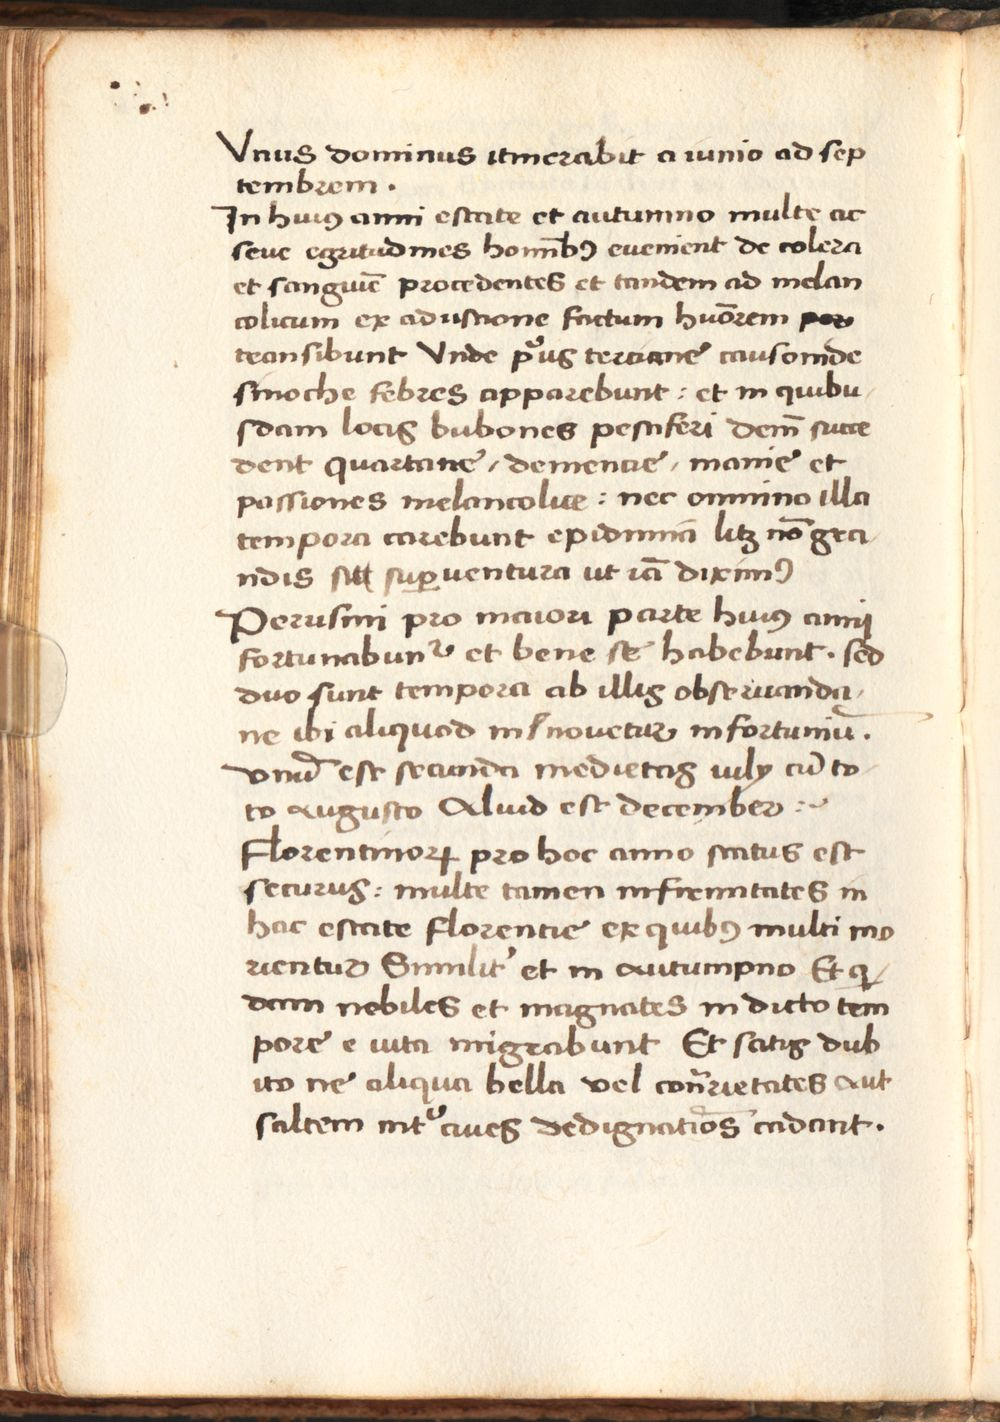 Vnus dominus itinerabit a iunio ad sep
tembrem .
In huiꝰ anni estate et autumno multe ac
seue egritudines homībꝰ euenient de colera
et sanguīe procedentes et tandem ad melan
colicum ex adustione factum huōrem
transibunt Vnde pͥus terciane causonide
sinoche febres apparebunt : et in quibu
sdam locis bubones pestiferi deīn succe
dent quartane / demencie / manie et
passiones melancolice : nec omnino illa
tempora carebunt epidimia litꝫ nō gra
ndis sit superuentura ut iā diximꝰ
Perusini pro maiori parte huiꝰ annij
fortunabunt᷑ et bene se habebunt . sed
duo sunt tempora ab illis obseruanda
ne ibi aliquod in novetur infortuniū .
vnū est secunda medietas iulij cū to
to augusto Aliud est december :~
Florentinoꝝ pro hoc anno status est
securus : multe tamen infirmitates in
hac estate florentie ex quibꝰ multi mo
rientur Similit᾽ et in autumpno Et q̄
dam nobiles et magnates in dicto tem
pore e uita migrabunt Et satis dub
ito ne aliqua bella vel cont̄rietates aut
saltem int᷑ ciues dedignatiōs cadant .